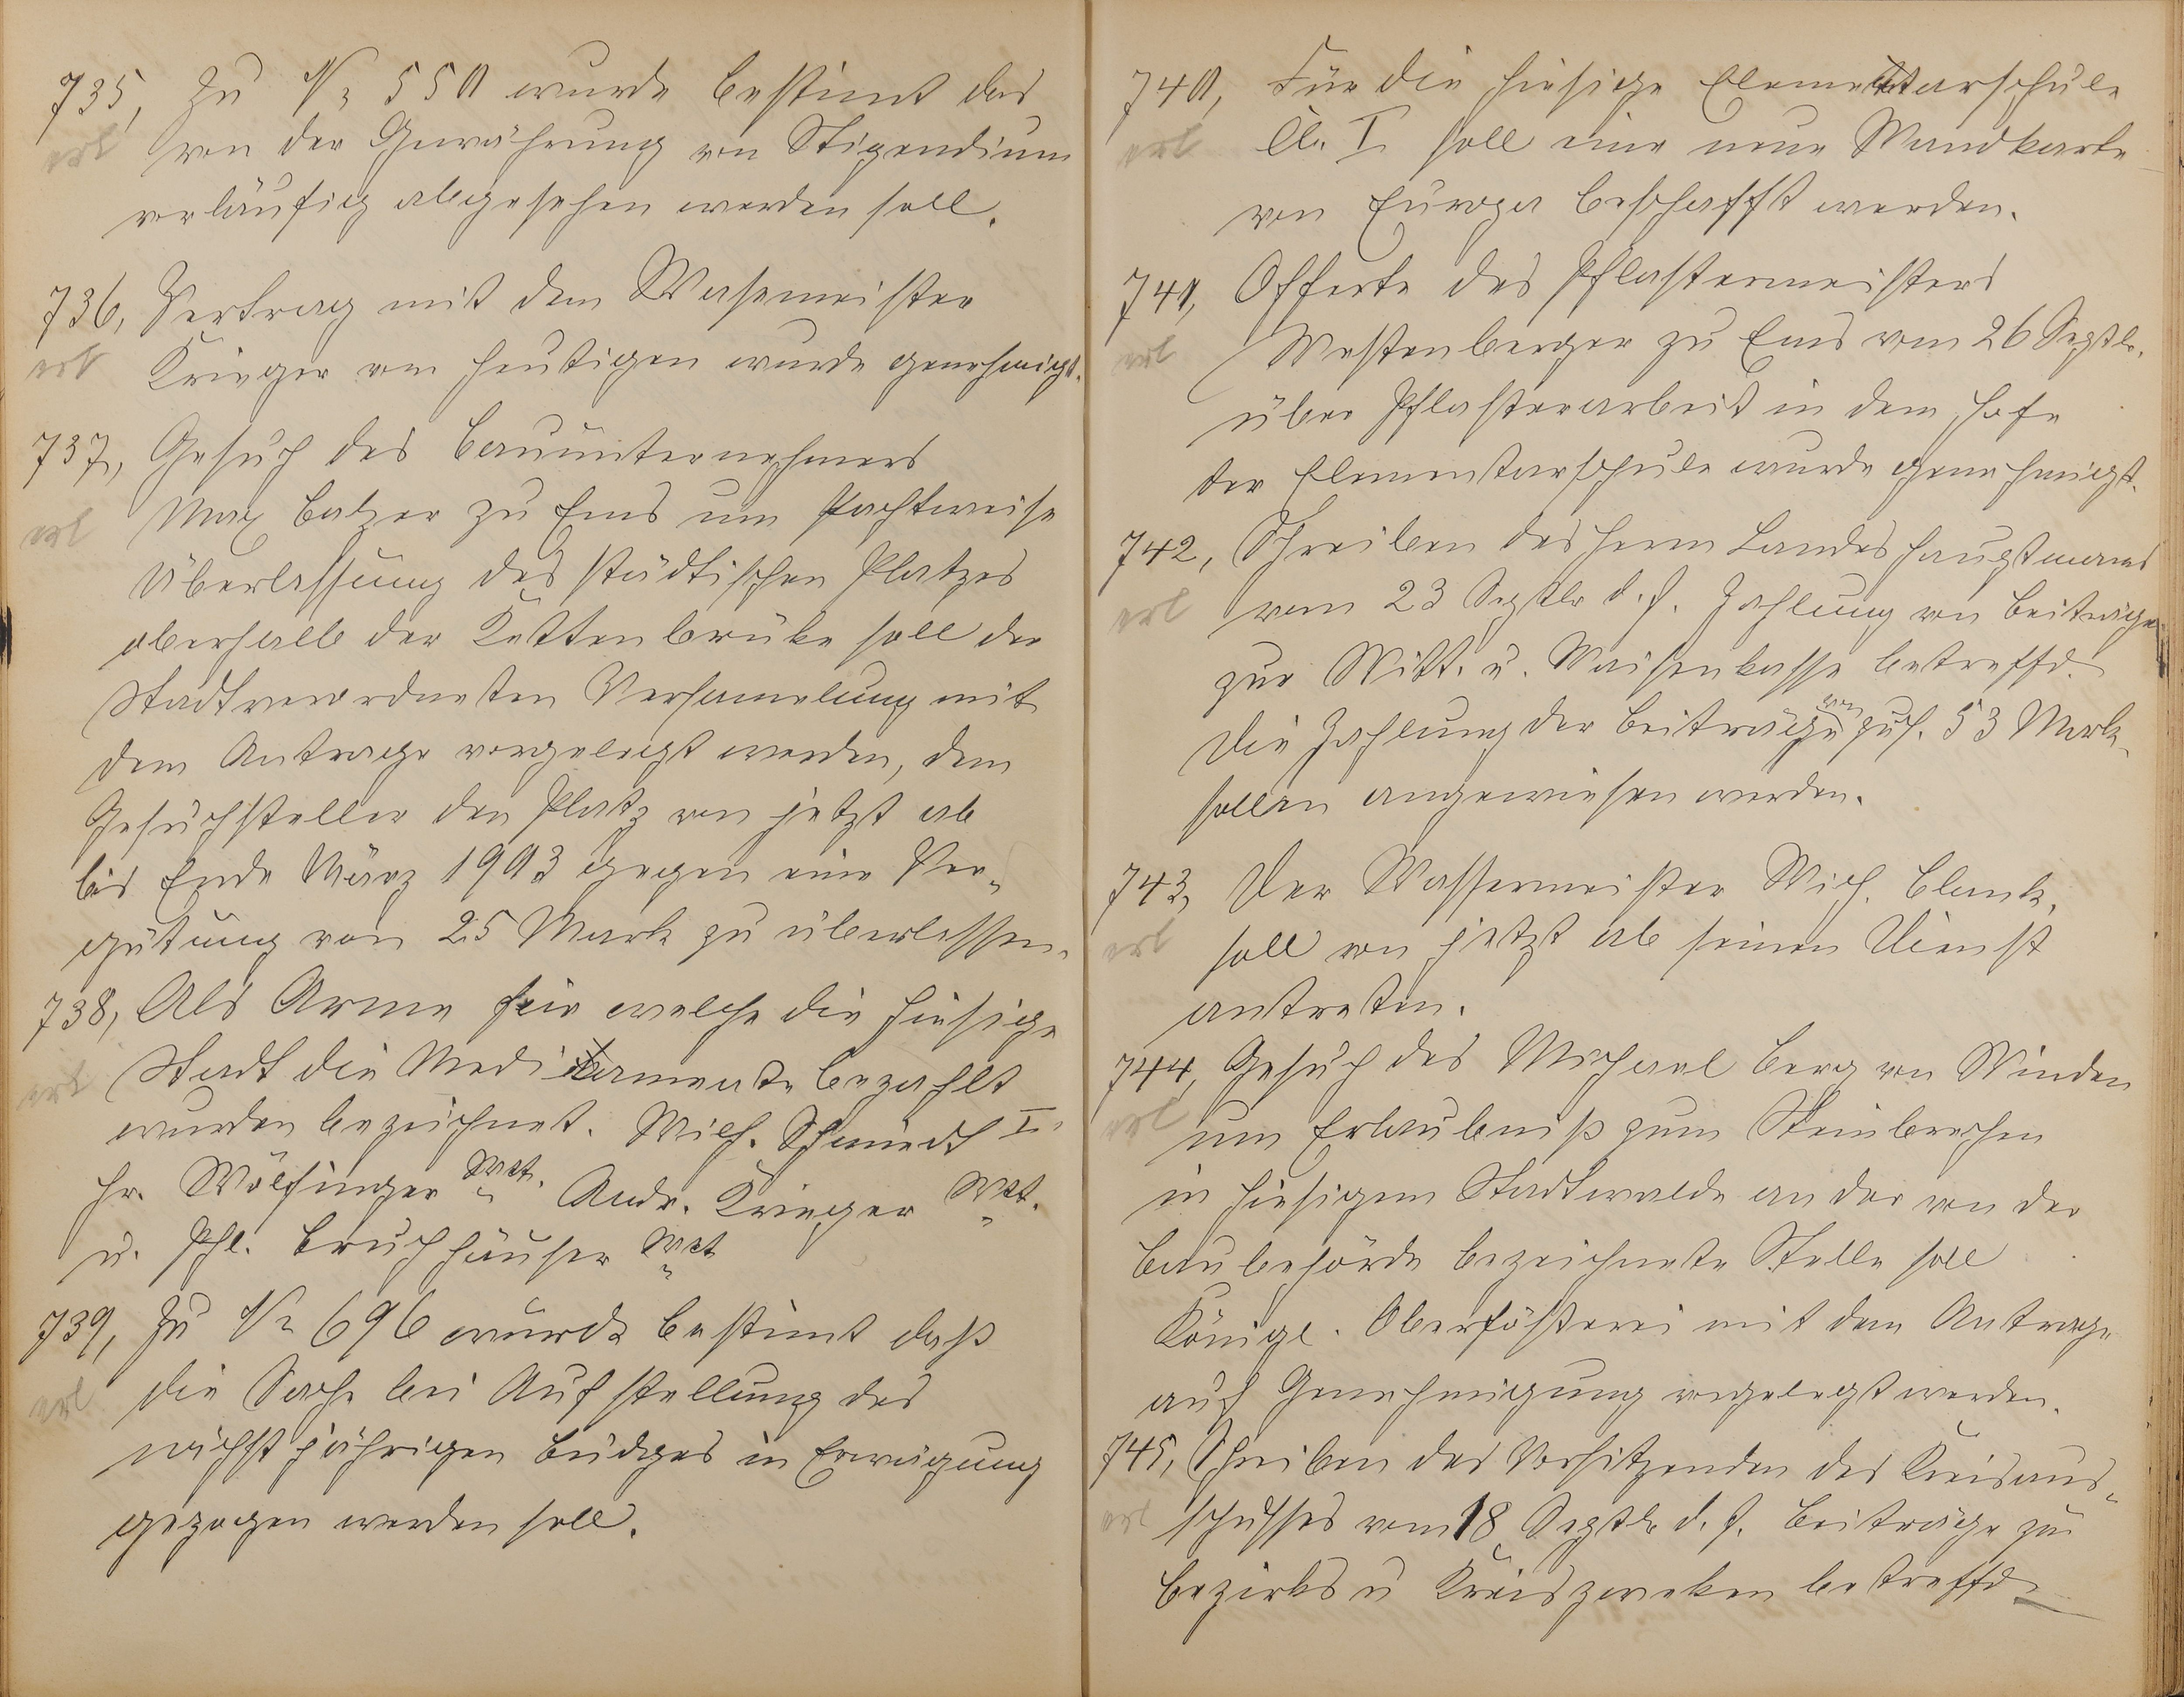 735, Zu № 550 wurde bestimt das
erl von der Gewährung von Stipendium
vorläufig abgesehen werden soll.
736, Vertrag mit dem Wasemeister
erl Krieger vom heutigen wurde genehmigt.
737, Gesuch des Bauunternehmers
erl Max Balzer zu Ems um Pachtweise
Überlassung des städtischen Platzes
oberhalb der Kettenbrüke soll der
Stadtverordneten Versamelung mit
dem Antrage vorgelegt werden, dem
Gesuchsteller den Platz von jetzt ab
bis Ende März 1903 gegen eine Ver-
gütung von 25 Mark zu überlassen.
738, Als Arme für welche die hiesige
erl Stadt die Medikamente bezahlt
wurden bezeichnet. Wilh. Schmidt I.
Hr. Wölfinger Wwt. Andr. Krieger Wwt.
u. Phl. Bruchhäuser Wwt
739, Zu № 696 wurde bestimt daß
erl die Sache bei Aufstellung des
nächst jährigen Budges in Erwägung
gezogen werden soll.
740, Für die hiesige Elementarschule
erl Cl. I soll eine neue Wandkarte
von Europa beschafft werden.
741, Offerte des Pflastermeisters
erl Westenberger zu Ems vom 26 Septb.
über Pflasterarbeit in dem Hofe
der Elementarschule wurde genehmigt.
742, Schreiben des Herrn Landeshauptmans
erl vom 23 Septb d. J. Zahlung von Beiträge
zur Witt. u. Waisenkasse betreffd.
Die Zahlung der Beiträge von zus. 53 Mark
sollen angewiesen werden.
743, Der Wassermeister Wilh. Blank,
erl soll von jetzt ab seinen Dienst
antreten.
744, Gesuch des Michael Berg von Winden
erl um Erlaubniß zum Steinbrechen
in hiesigem Stadtwalde an der von der
Baubehörde bezeichnete Stelle soll
Königl. Oberfösterei mit dem Antrage
auf Genehmigung vorgelegt werden.
745, Schreiben des Vorsitzenden des Kreisaus-
erl schusses vom 18 Septb d. J. Beiträge zu
Bezirks u Kreiszweken betreffd